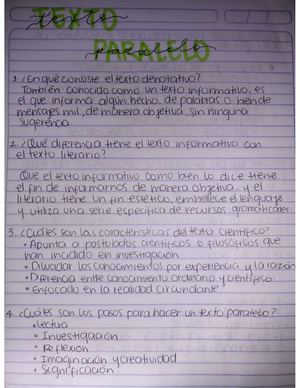 TEXTO
texto
PARALELO
paralelo
1. ¿En qué consiste el texto denotativo?
También conocido como un texto informativo, es
el que informa algún hecho, de palabras o bien de
mensajes mil, de manera objetiva, sin ninguna
sugerencia
2. ¿Qué diferencia tiene el texto informativo con
el texto literario?
Que el texto informativo como bien lo dice tiene
el fin de informarnos de manera objetiva, y el
literario tiene un fin estético, embellece el lenguaje
y utiliza una serie específica de recursos gramaticales.
3. ¿Cuáles son las características del texto científico?
• Apunta a postulados científicos o filosóficos que
han incidido en investigación
• Divulgar los conocimientos por experiencia y la razón
• Diferencia entre conocimiento ordinario y científico
• Enfocado en la realidad circundante
4. ¿Cuáles son los pasos para hacer un texto paralelo?
• Lectura
• Investigación
• Reflexión
• Imaginación y creatividad
• Significación